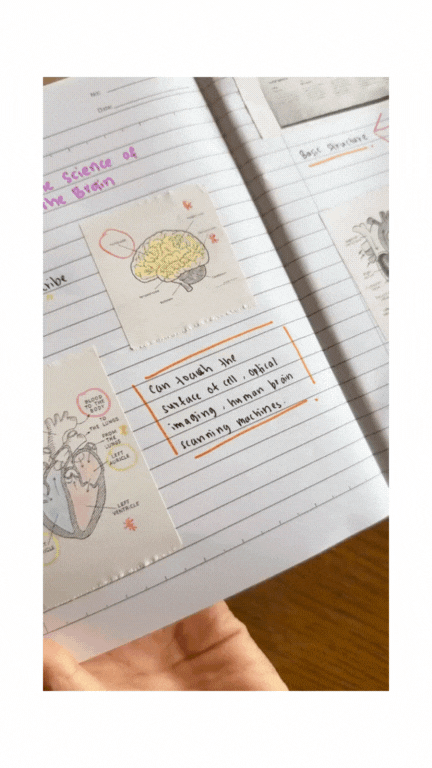 No:
Date:
e Science of
the Brain
Basic Structure
cribe
can touch the
surface of cell, optical
imaging, human brain
scanning machines.
BLOOD
TO THE
BODY
TO
THE LUNGS
FROM
THE
LUNGS
LEFT
AURICLE
LEFT
VENTRICLE